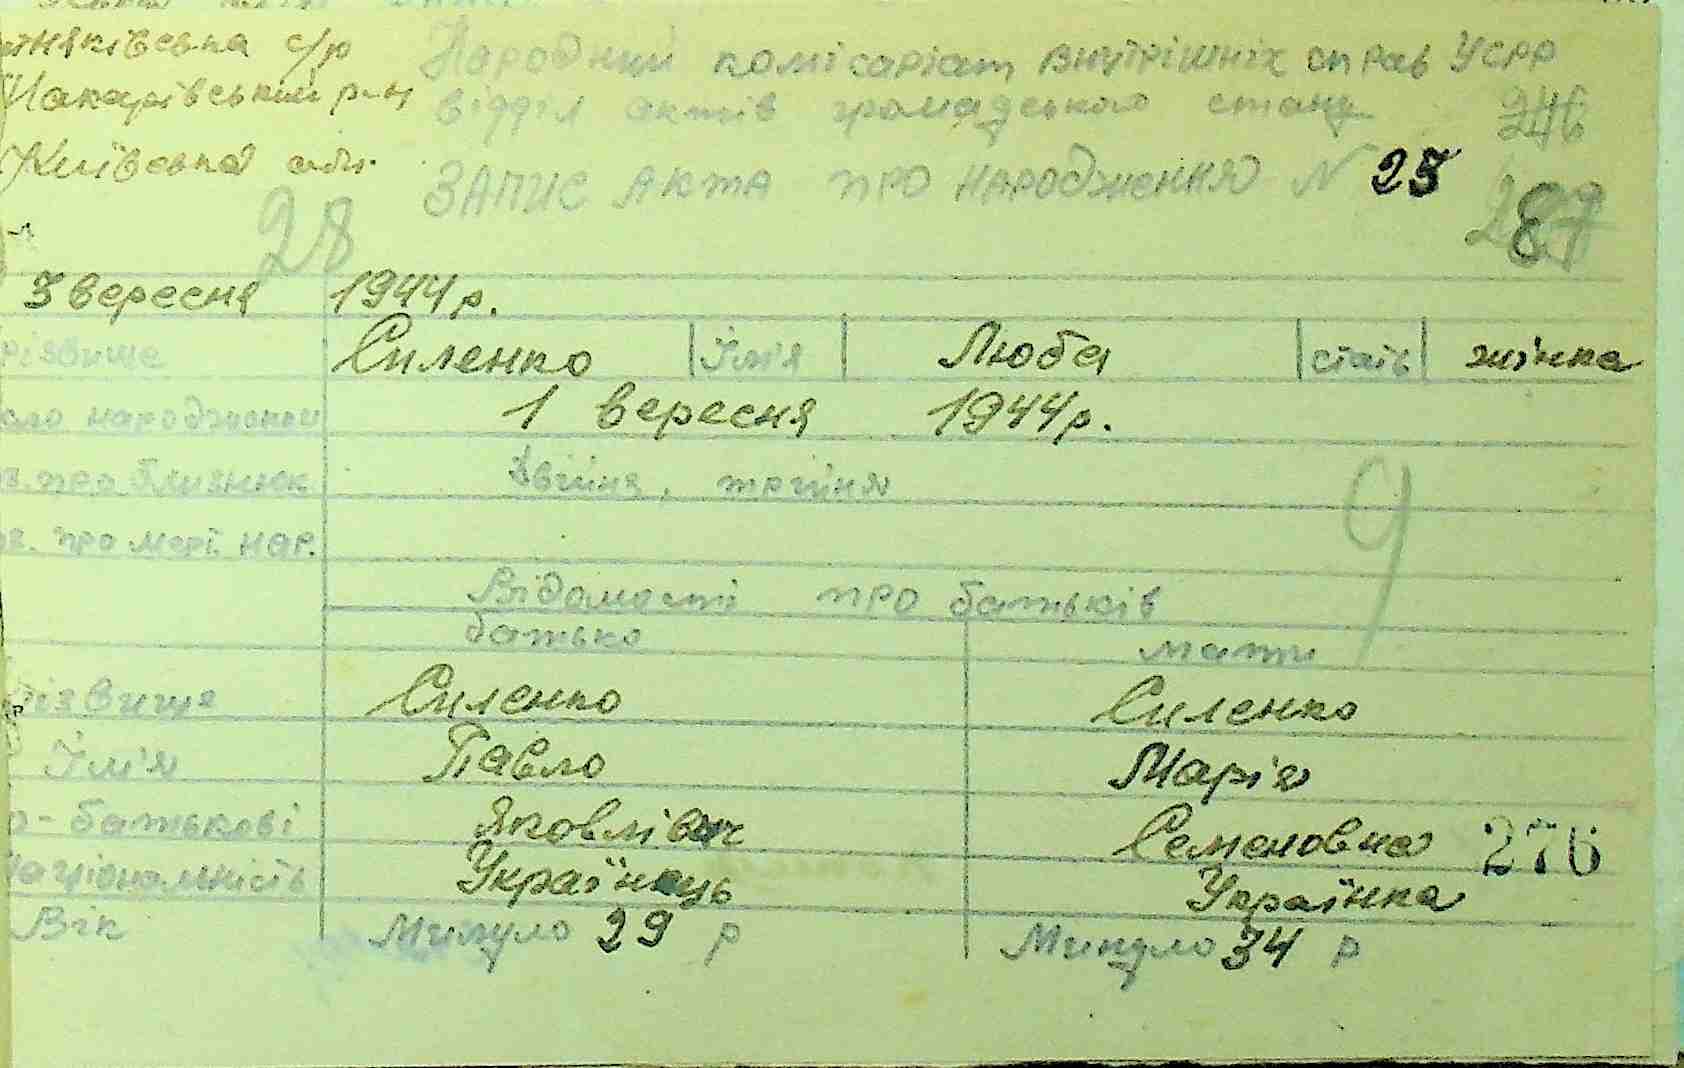 с/р Народний комісаріат внутрішніх справ УСРР
Макарівський р-н відділ актів громадського стану 246
Київська обл. ЗАПИС АКТА ПРО НАРОДЖЕННЯ N 25
28 287
3 вересня 1944 р.
різвище Силенко Ім'я Люба стать жінка
народження 1 вересня 1944 р.
про близнюк двійня, трійня
про мерт. нар.
9
Відомості про батьків
батько мати
різвище Силенко Силенко
Ім'я Павло Марія
о-батькові Яковлівич Семеновна 276
національність Українець Українка
Вік Минуло 29 р Минуло 34 р